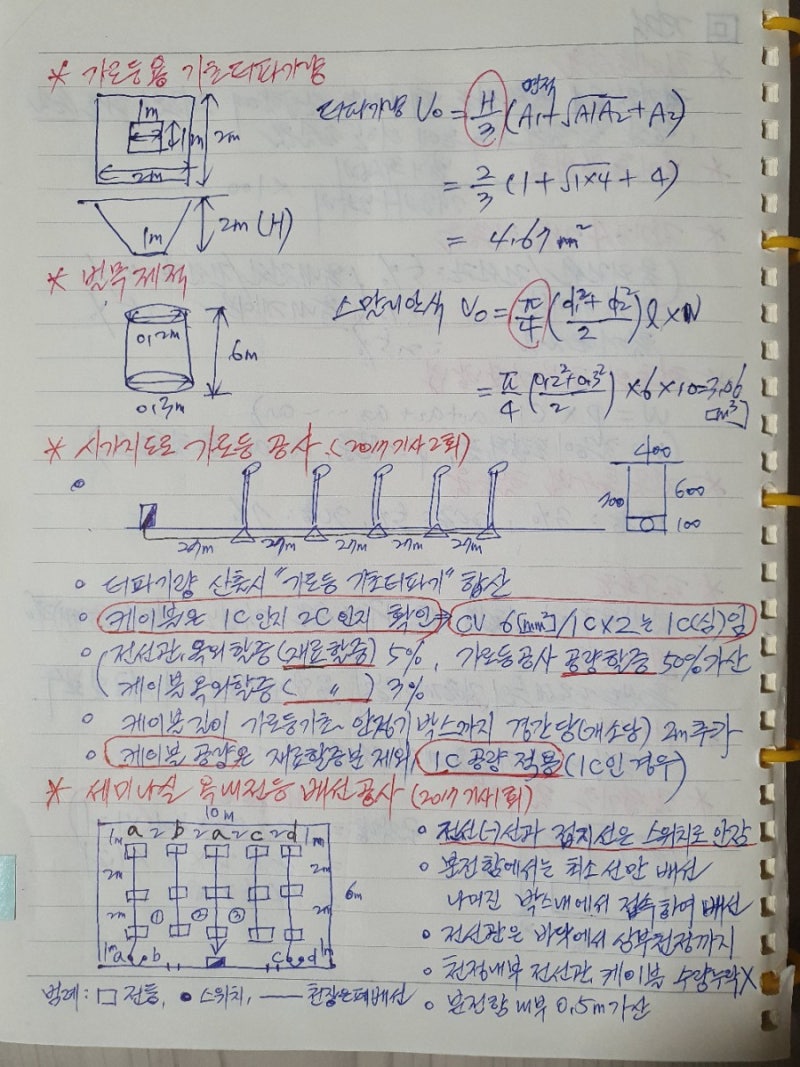 * 가로등용 기초터파기량
1m
1m
2m
2m
터파기량 V₀ = H/3 (A1+√A1A2+A2)
면적
= 2/3 (1+√1×4+4)
= 4.67 m²
1m
2m (H)
* 벌목재적
0.2m
6m
0.3m
스말리안식 V₀ = π/4 (d₁²+d₂²/2) l×N
= π/4 (0.2²+0.3²/2) ×6×10=3.06
[m³]
* 시가지도로 가로등 공사 (2017기사2회)
400
700
600
100
27m 27m 27m 27m 27m
○ 터파기량 산출시 "가로등 기초터파기" 합산
○ 케이블은 1C인지 2C인지 확인 → CV 6[mm²]/1C×2는 1C(심)임
○ 전선관 옥외할증(재료할증) 5%, 가로등공사 공량할증 50%가산
케이블옥외할증( 〃 ) 3%
○ 케이블길이 가로등기초~안정기박스까지 경간당(개소당) 2m추가
○ 케이블 공량은 재료할증분 제외, 1C 공량 적용 (1C인 경우)
* 세미나실 옥내전등 배선공사 (2017기사1회)
10m
1m a 2 b 2 a 2 c 2 d 1m
2m
2m
2m
2m
6m
① ② ③
1m a b
c d 1m
○ 전선(-)선과 접지선은 스위치로 안감
○ 분전함에서는 최소선만 배선
나머진 박스내에서 접속하여 배선
○ 전선관은 바닥에서 상부천장까지
○ 천정내부 전선관, 케이블 수량누락X
○ 분전함 내부 0.5m가산
범례: □ 전등, ● 스위치, — 천장은폐배선